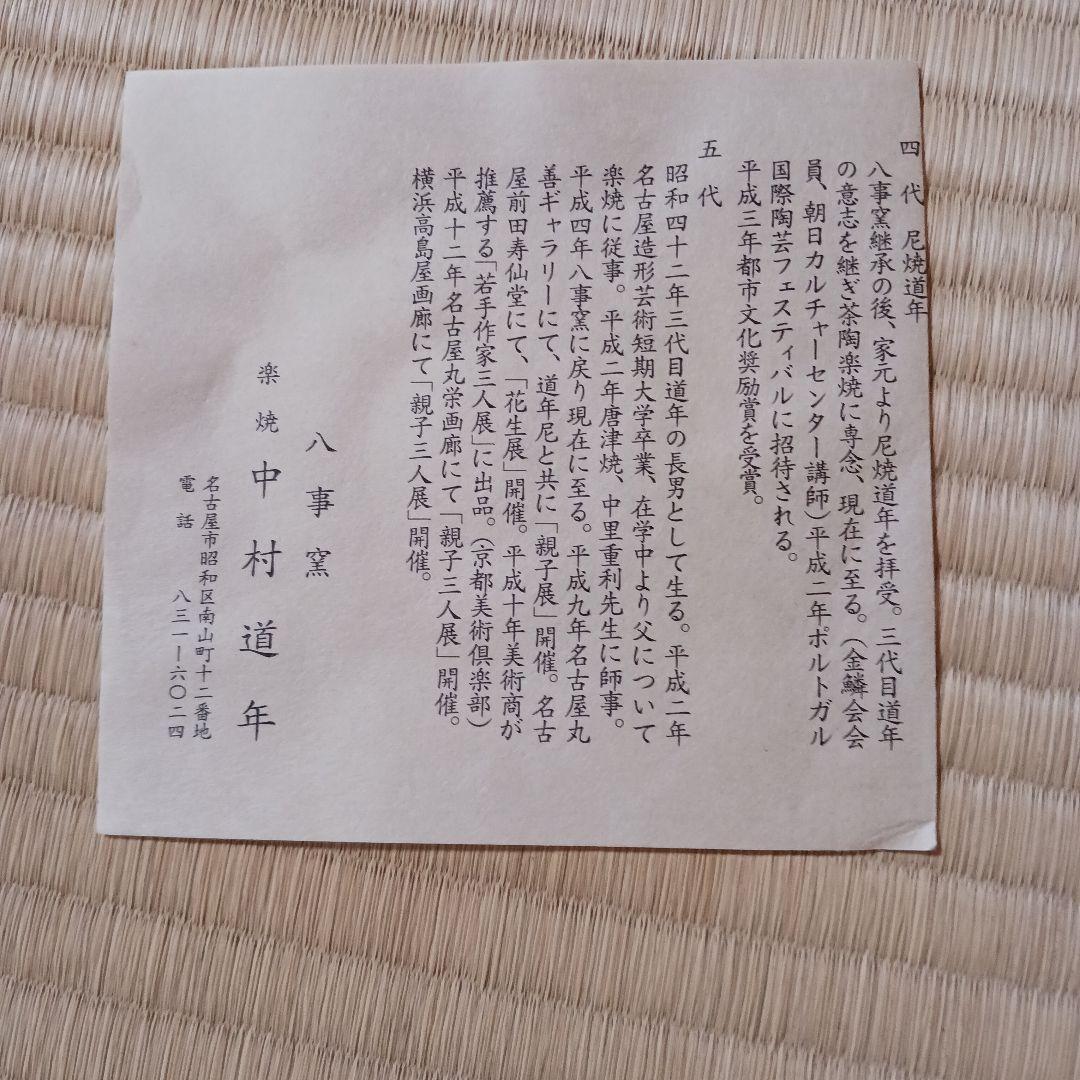 四代　尼焼道年
八事窯継承の後、家元より尼焼道年を拝受。三代目道年
の意志を継ぎ茶陶楽焼に専念、現在に至る。（金鱗会会
員、朝日カルチャーセンター講師）平成二年ポルトガル
国際陶芸フェスティバルに招待される。
平成三年都市文化奨励賞を受賞。
五代
昭和四十二年三代目道年の長男として生る。平成二年
名古屋造形芸術短期大学卒業、在学中より父について
楽焼に従事。平成二年唐津焼、中里重利先生に師事。
平成四年八事窯に戻り現在に至る。平成九年名古屋丸
善ギャラリーにて、道年尼と共に「親子展」開催。名古
屋前田寿仙堂にて、「花生展」開催。平成十年美術商が
推薦する「若手作家三人展」に出品。（京都美術倶楽部）
平成十二年名古屋丸栄画廊にて「親子三人展」開催。
横浜高島屋画廊にて「親子三人展」開催。
八事窯
楽焼 中村道年
名古屋市昭和区南山町十二番地
電話 八三一ー六〇二四